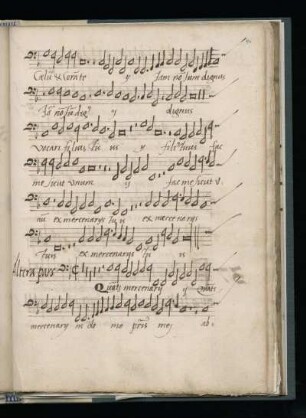 Celū & corā te ij Jam nō sum dignus
Jā nō sū dig⁹ ij dignus
vocari filius tuus ij filius tuus fac
me sicut unum ij fac me sicut u
nū ex mercenarijs tuis ex mercenarijs
tuis ex mercenarijs tuis
Altera pars
Quāti mercenarij ij Quāti
mercenarij in domo pr̄is mei ab